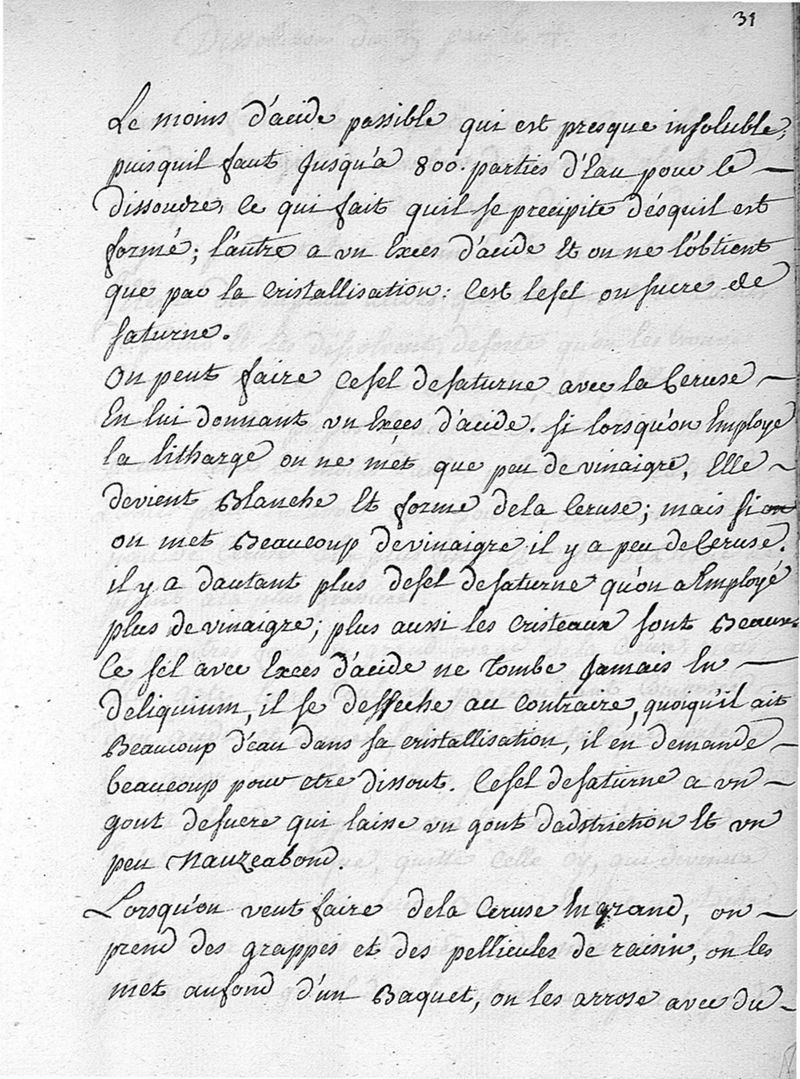 31
Le moins d'acide possible qui est presque insoluble,
puisquil faut Jusqu'a 800. parties d'Eau pour le
dissoudre, Ce qui fait quil se precipite désquil est
formé; l'autre a un Exces d'acide Et on ne l'obtient
que par la Cristallisation: C'est le sel ou sucre de
saturne.
On peut faire Ce sel de saturne avec la Ceruse
En lui donnant un Exces d'acide. si lorsqu'on Employe
la litharge on ne mèt que peu de vinaigre, Elle
devient Blanche Et forme dela Ceruse; mais si
on met Beaucoup de vinaigre il y a peu de Ceruse.
il y a dautant plus de sel de saturne qu'on a Employé
plus de vinaigre; plus aussi les Cristeaux sont Beaux.
Ce sel avec Exces d'acide ne Tombe Jamais En
deliquium, il se desseche au Contraire, quoiqu'il ait
Beaucoup d'eau dans sa cristallisation, il en demande
beaucoup pour etre dissout. Ce sel de saturne a un
gout de sucre qui laisse un gout dadstriction Et un
peu Nauzeabond.
Lorsqu'on veut faire dela Ceruse En grand, on
prend des grappes et des pellicules de raisin, on les
met au fond d'un Baquet, on les arrose avec du